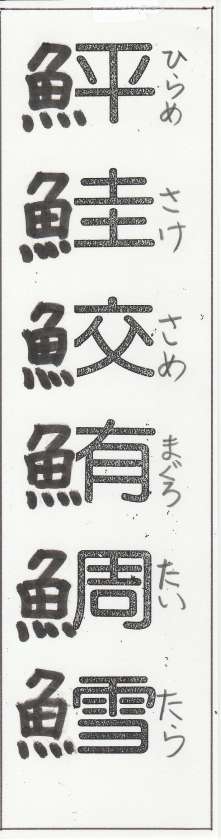 鮃 ひらめ
鮭 さけ
鮫 さめ
鮪 まぐろ
鯛 たい
鱈 たら